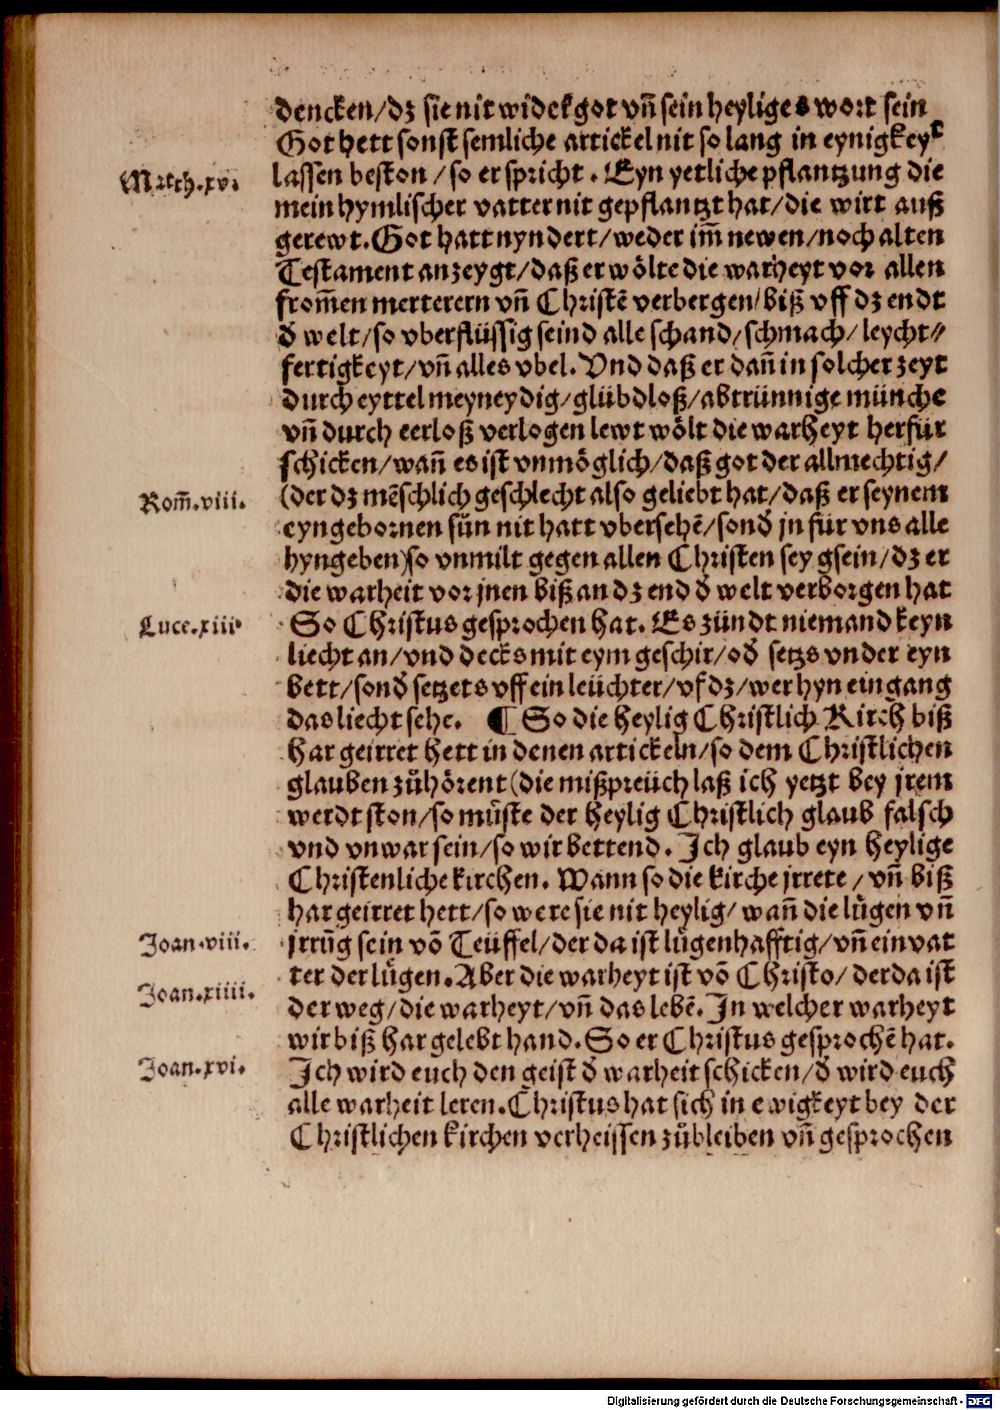 dencken/dz sie nit wider got vñ sein heyliges wort sein
Got hett sonst semliche artickel nit so lang in eynigkeyt
Matth.xv.
lassen beston/so er spricht. Eyn yetliche pflantzung die
mein hymlischer vatter nit gepflantzt hat/die wirt auß
gerewt. Got hatt nyndert/weder im̃ newen/noch alten
Testament anzeygt/daß er wölte die warheyt vor allen
from̃en merterern vñ Christẽ verbergen/biß vff dz endt
đ welt/so vberflüssig seind alle schand/schmach/leycht⸗
fertigkeyt/vñ alles vbel. Vnd daß er dañ in solcher zeyt
durch eyttel meyneydig/glübdloß/abtrünnige münche
vñ durch eerloß verlogen lewt wölt die warheyt herfür
schicken/wañ es ist vnmöglich/daß got der allmechtig/
Rom̃.viii.
(der dz mẽschlich geschlecht also geliebt hat/daß er seynem
eyngebornen sůn nit hatt vbersehẽ/sonđ jn für vns alle
hyngeben) so vnmilt gegen allen Christen sey gsein/dz er
die warheit vor jnen biß an dz end đ welt verborgen hat
Luce.xiii
So Christus gesprochen hat. Es zündt niemand keyn
liecht an/vnd decks mit eym geschir/ođ setzs vnder eyn
bett/sonđ setzets vff ein leüchter/vf dz/wer hyn eingang
das liecht sehe. ¶ So die heylig Christlich Kirch biß
har geirret hett in denen artickeln/so dem Christlichen
glauben zůhörent (die mißpreüch laß ich yetzt bey jrem
werdt ston/so můste der heylig Christlich glaub falsch
vnd vnwar sein/so wir bettend. Ich glaub eyn heylige
Christenliche kirchen. Wann so die kirche jrrete/vñ biß
har geirret hett/so were sie nit heylig/wañ die lůgen vñ
Joan.viii.
jrrũg sein võ Teüffel/der da ist lůgenhafftig/vñ ein vat
ter der lůgen. Aber die warheyt ist võ Christo/der da ist
Joan.xiiii.
der weg/die warheyt/vñ das lebẽ. In welcher warheyt
wir biß har gelebt hand. So er Christus gesprochẽ hat.
Joan.xvi.
Ich wird euch den geist đ warheit schicken/đ wird euch
alle warheit leren. Christus hat sich in ewigkeyt bey der
Christlichen kirchen verheissen zůbleiben vñ gesprochen
Digitalisierung gefördert durch die Deutsche Forschungsgemeinschaft - DFG